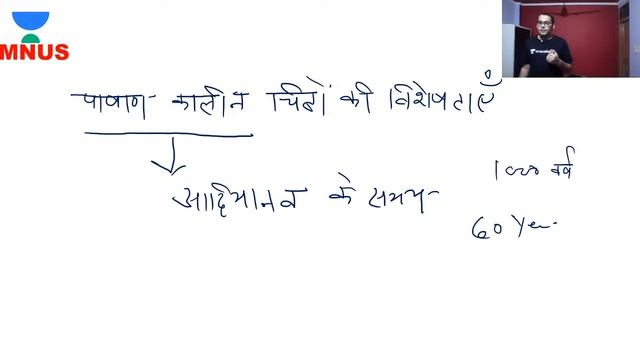 MNUS
पाषाण कालीन चित्रों की विशेषताएँ
आदिमानव के समय
1000 वर्ष
60 Year